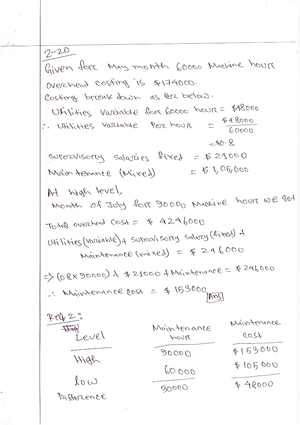 2-20
Given for May month 60000 Machine hours
overhead costing is $174000.
Costing break down as per below.
Utilities Variable for 60000 hour = $48000
∴ Utilities variable Per hour = $48000
60000
= $0.8
Supervisory salaries fixed = $21000
Maintenance (Mixed) = $1,05,000
At high level,
Month of July for 90000 Machine hour we got
Total overhead cost = $ 4246000
Utilities (variable) + Supervisory Salary (fixed) +
Maintenance (mixed) = $ 246000
⇒ (0.8 x 90000) + $ 21000 + Maintenance = $ 246000
∴ Maintenance cost = $ 153000
Ans
Req 2:
Level Maintenance hour Maintenance cost
High 90000 $ 153000
low 60000 $ 105000
Difference 30000 $ 48000